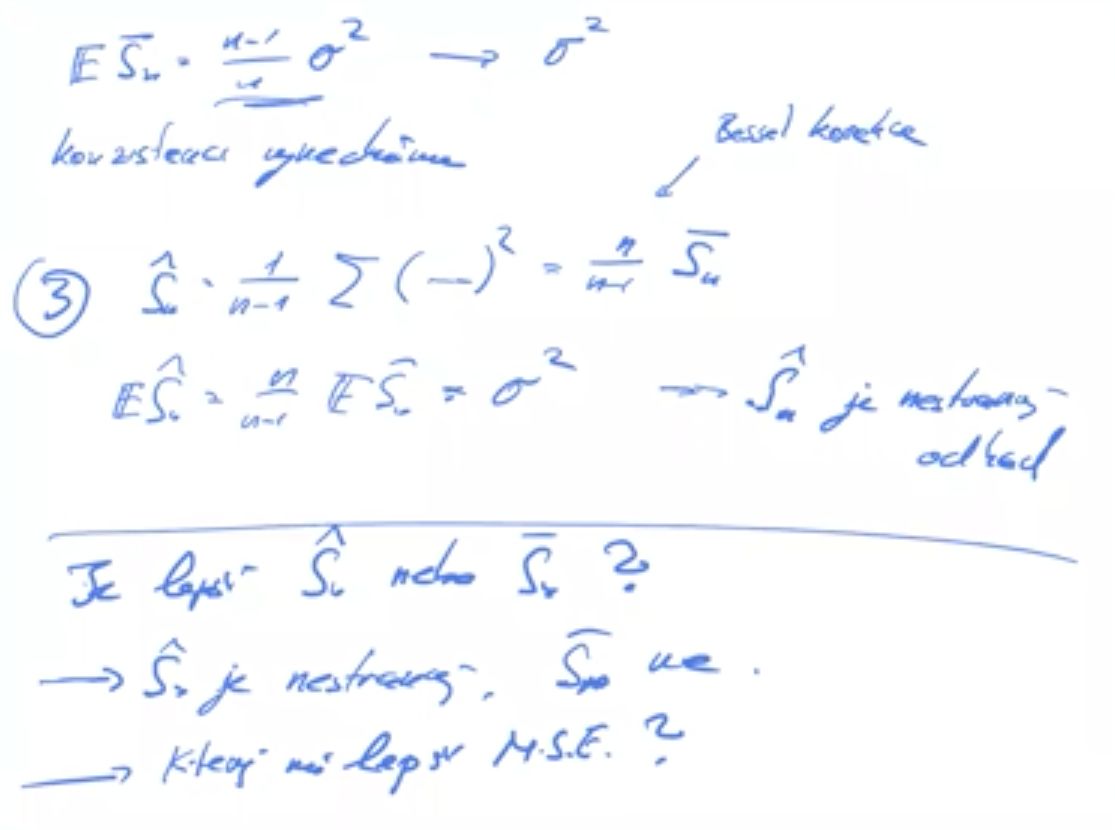 E S̄ₙ = n-1/n σ² → σ²
konzistenci vynecháme
Bessel korekce
③ Ŝₙ = 1/n-1 Σ (—)² = n/n-1 S̄ₙ
E Ŝₙ = n/n-1 E S̄ₙ = σ² → Ŝₙ je nestranný
odhad
Je lepší Ŝₙ nebo S̄ₙ ?
→ Ŝₙ je nestranný, S̄ₙ ne.
→ Který má lepší M.S.E. ?